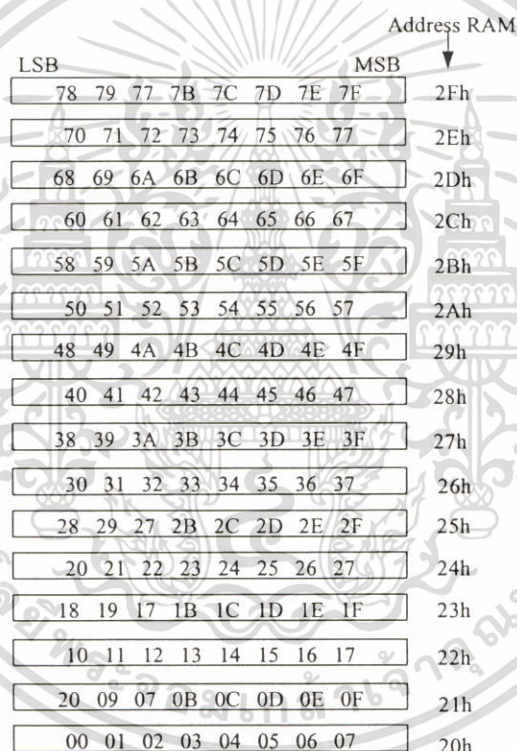 Address RAM
LSB MSB
78 79 77 7B 7C 7D 7E 7F 2Fh
70 71 72 73 74 75 76 77 2Eh
68 69 6A 6B 6C 6D 6E 6F 2Dh
60 61 62 63 64 65 66 67 2Ch
58 59 5A 5B 5C 5D 5E 5F 2Bh
50 51 52 53 54 55 56 57 2Ah
48 49 4A 4B 4C 4D 4E 4F 29h
40 41 42 43 44 45 46 47 28h
38 39 3A 3B 3C 3D 3E 3F 27h
30 31 32 33 34 35 36 37 26h
28 29 27 2B 2C 2D 2E 2F 25h
20 21 22 23 24 25 26 27 24h
18 19 17 1B 1C 1D 1E 1F 23h
10 11 12 13 14 15 16 17 22h
20 09 07 0B 0C 0D 0E 0F 21h
00 01 02 03 04 05 06 07 20h